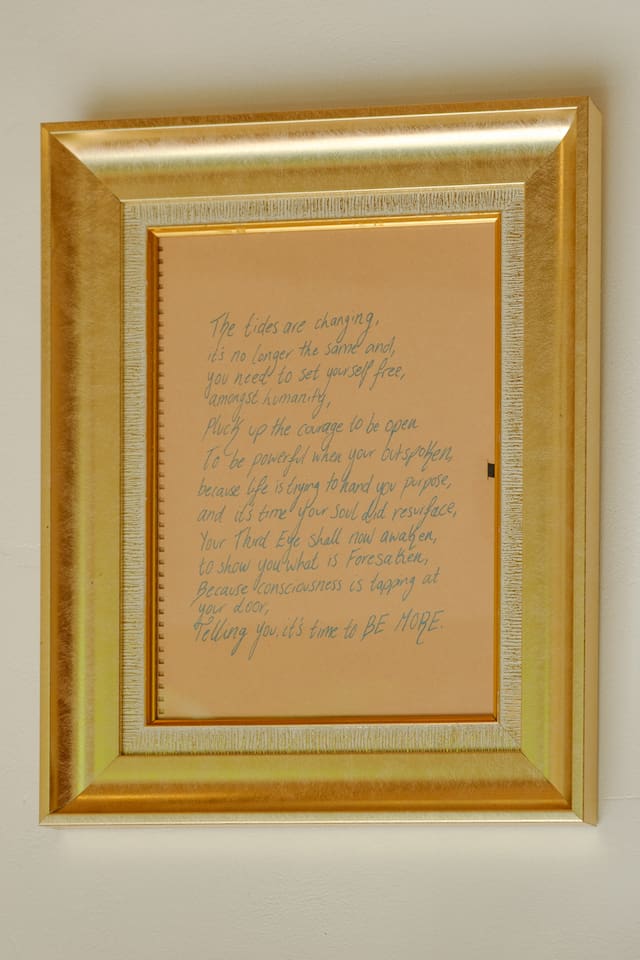 The tides are changing,
it's no longer the same and,
you need to set yourself free,
amongst humanity,
Pluck up the courage to be open
To be powerful when your outspoken,
because life is trying to hand you purpose,
and it's time your soul did resurface,
Your Third Eye shall now awaken,
to show you what is Foresaken,
Because consciousness is tapping at
your door,
Telling you, it's time to BE MORE.